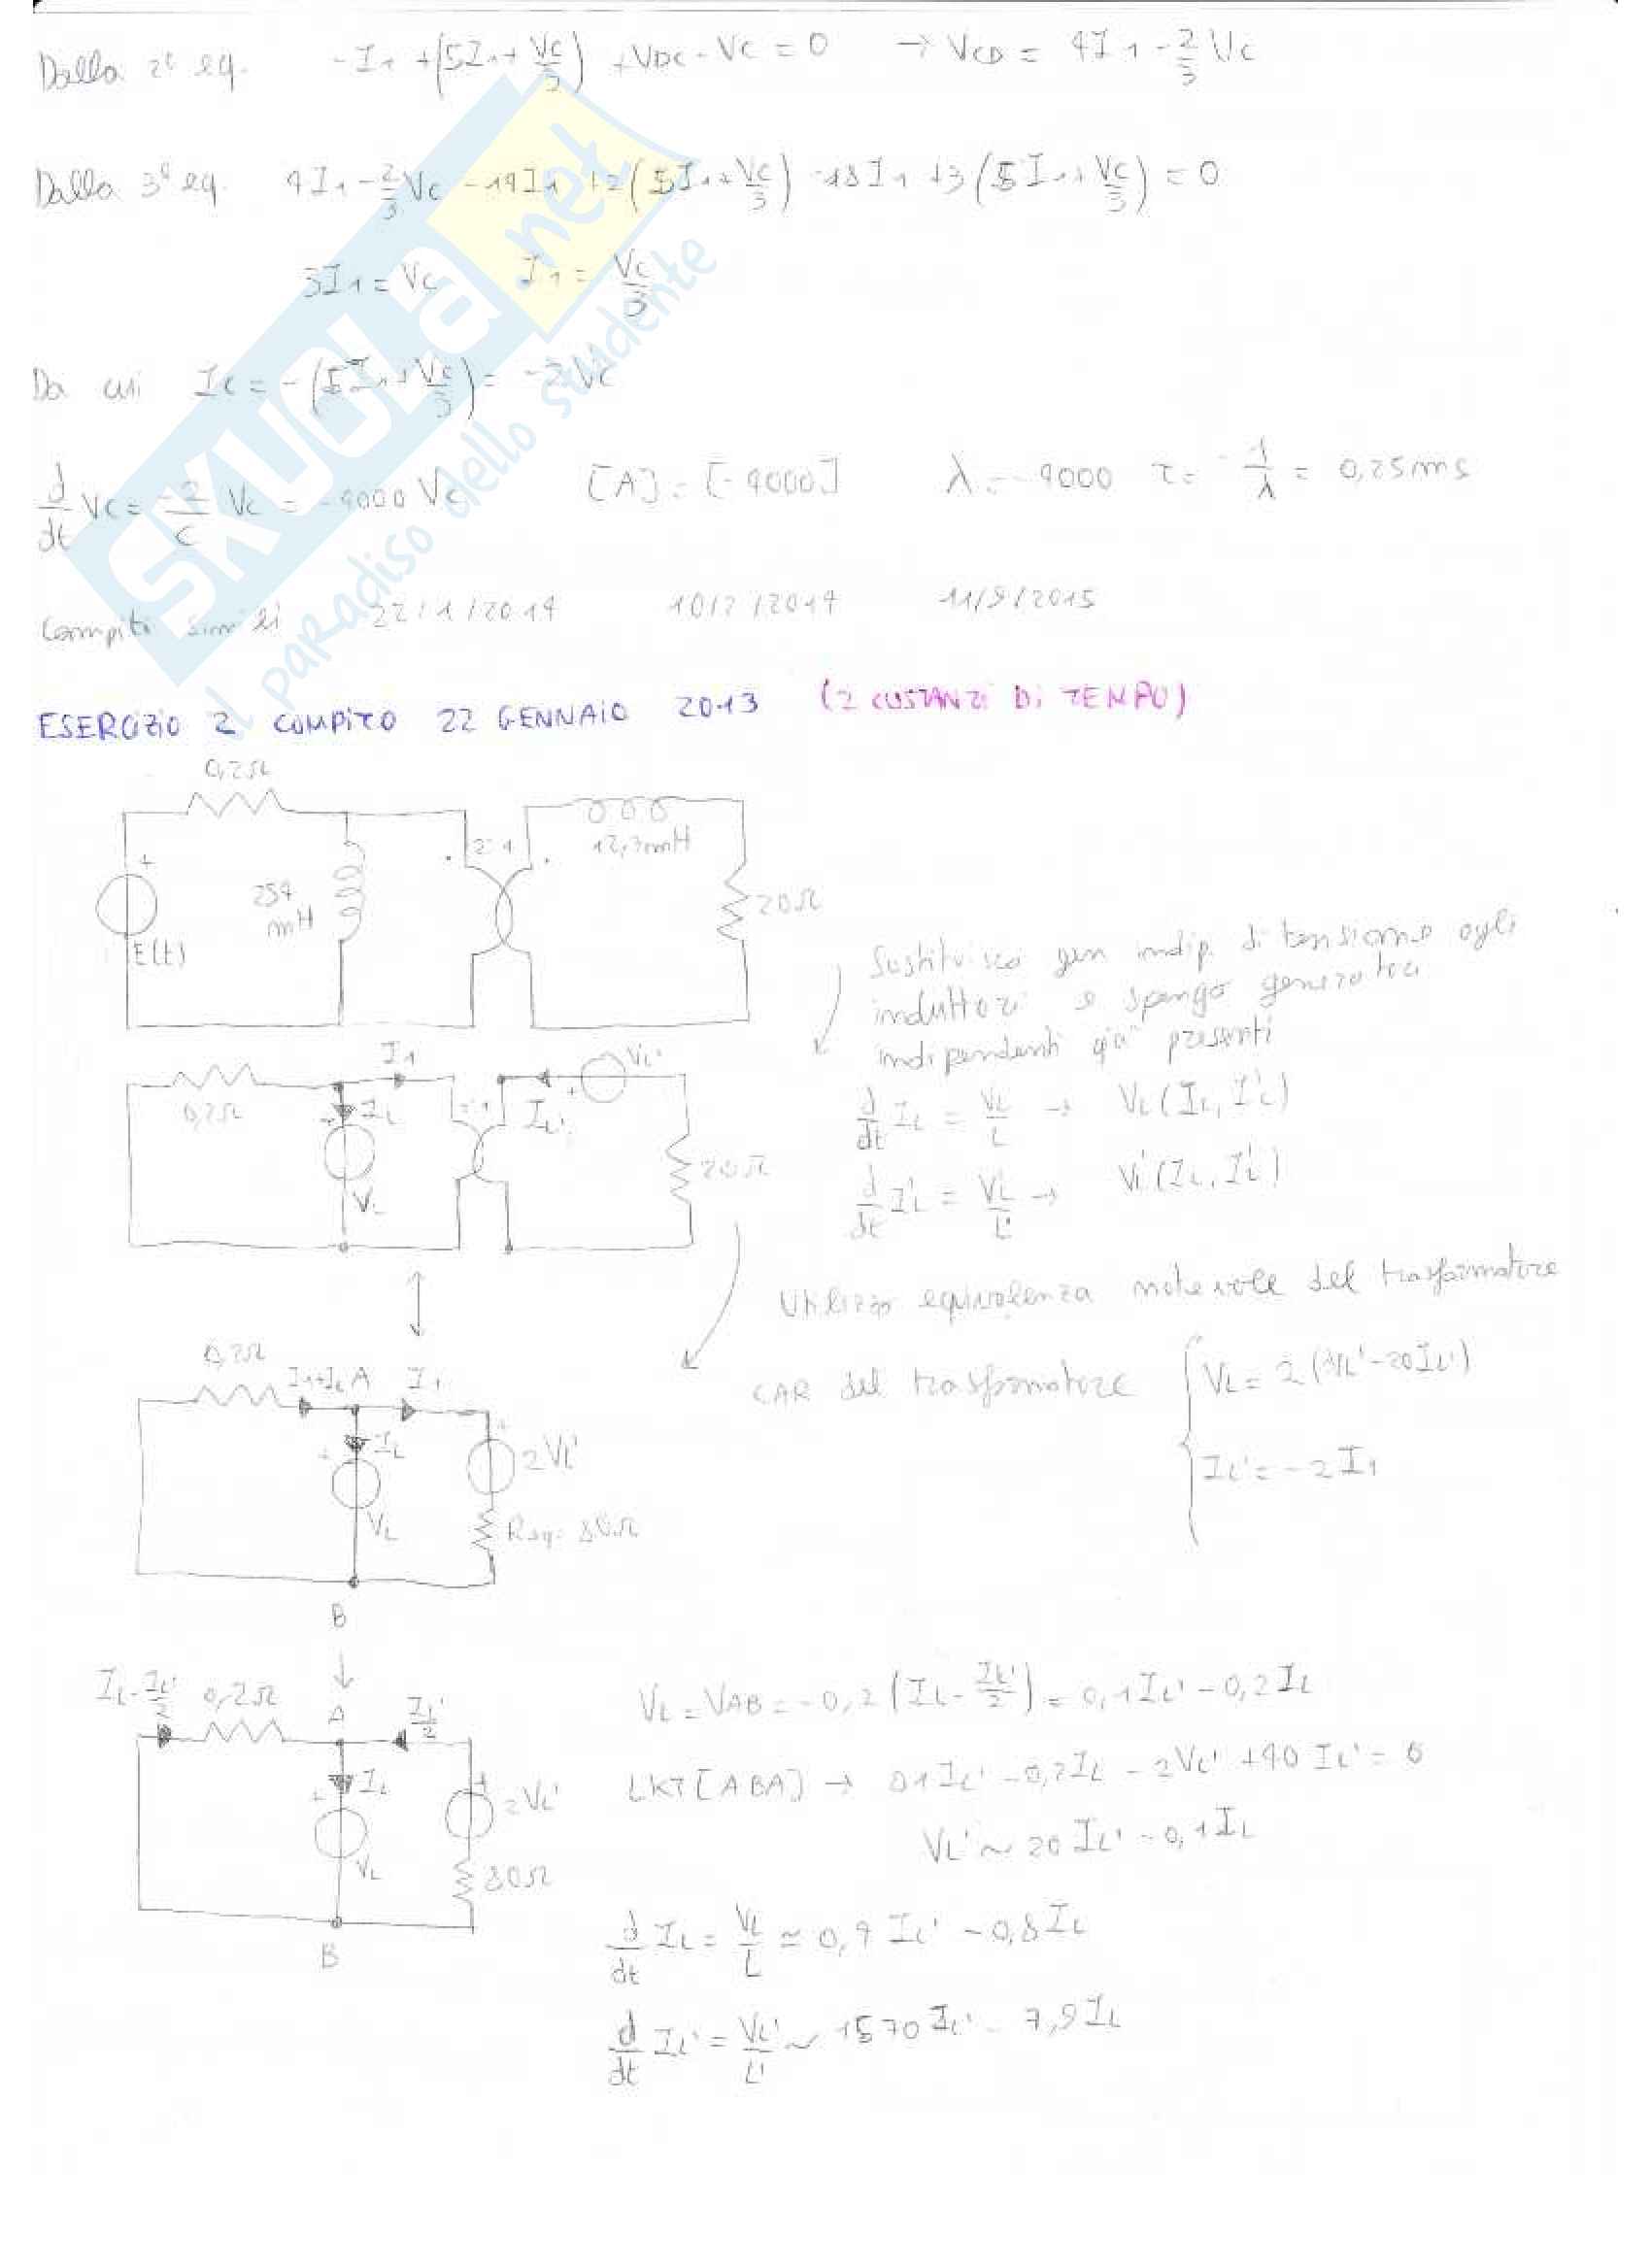 Dalla 2ª eq. -I1 + (5I1 + Vc/3) + VDC - Vc = 0 → VCD = 4I1 - 2/3 Vc
Dalla 3ª eq. 4I1 - 2/3 Vc - 14I1 + 2(5I1 + Vc/3) - 18I1 + 3(5I1 + Vc/3) = 0
3I1 = Vc I1 = Vc/3
Da cui Ic = -(5I1 + Vc/3) = -2Vc
d/dt Vc = -2/C Vc = -4000 Vc [A] = [-4000] λ = -4000 τ = -1/λ = 0,25ms
Compiti simili 22/1/2014 10/2/2014 11/9/2015
ESERCIZIO 2 COMPITO 22 GENNAIO 2013 (2 COSTANTI DI TEMPO)
0,2Ω
2:1
12,7mH
254 mH
20Ω
+
E(t)
Sostituisco gen indip. di tensione agli
induttori e spengo generatori
indipendenti già presenti
I1
VL'
0,2Ω
IL
2:1
IL'
+
20Ω
VL
d/dt IL = VL/L → VL(IL, IL')
d/dt IL' = VL'/L' → VL'(IL, IL')
Utilizzo equivalenza notevole del trasformatore
0,2Ω
I1+IL A I1
IL
+
2VL'
VL
Req = 80Ω
B
CAR del trasformatore
VL = 2(VL' - 20IL')
IL' = -2I1
IL - IL'/2 0,2Ω A IL'/2
IL
+
2VL'
VL
80Ω
B
VL = VAB = -0,2(IL - IL'/2) = 0,1IL' - 0,2IL
LKT [ABA] → 0,1IL' - 0,2IL - 2VL' + 40IL' = 0
VL' ~ 20IL' - 0,1IL
d/dt IL = VL/L ≃ 0,4 IL' - 0,8IL
d/dt IL' = VL'/L' ~ 1570 IL' - 7,9IL
SKUOLA.net
il paradiso dello studente